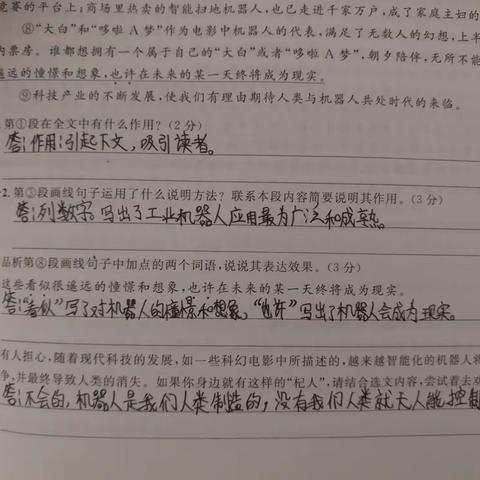 竞赛的平台上;商场里热卖的智能扫地机器人,也已走进千家万户,成了家庭主妇的
⑧“大白”和“哆啦 A 梦”作为电影中机器人的代表,满足了无数人的幻想,上半
内票房。谁都想拥有一个属于自己的“大白”或者“哆啦 A 梦”,朝夕陪伴,无所不能
遥远的憧憬和想象,也许在未来的某一天终将成为现实。
⑨科技产业的不断发展,使我们有理由期待人类与机器人共处时代的来临。
第①段在全文中有什么作用?(2 分)
答:作用:引起下文,吸引读者。
2. 第③段画线句子运用了什么说明方法?联系本段内容简要说明其作用。(3 分)
答:列数字。写出了工业机器人应用最为广泛和成熟。
品析第⑧段画线句子中加点的两个词语,说说其表达效果。(3 分)
这些看似很遥远的憧憬和想象,也许在未来的某一天终将成为现实。
答:“看似”写了对机器人的憧憬和想象,“也许”写出了机器人会成为现实。
有人担心,随着现代科技的发展,如一些科幻电影中所描述的,越来越智能化的机器人将
争,并最终导致人类的消失。如果你身边就有这样的“杞人”,请结合选文内容,尝试着去劝
答:不会的,机器人是我们人类制造的,没有我们人类就无人能控制